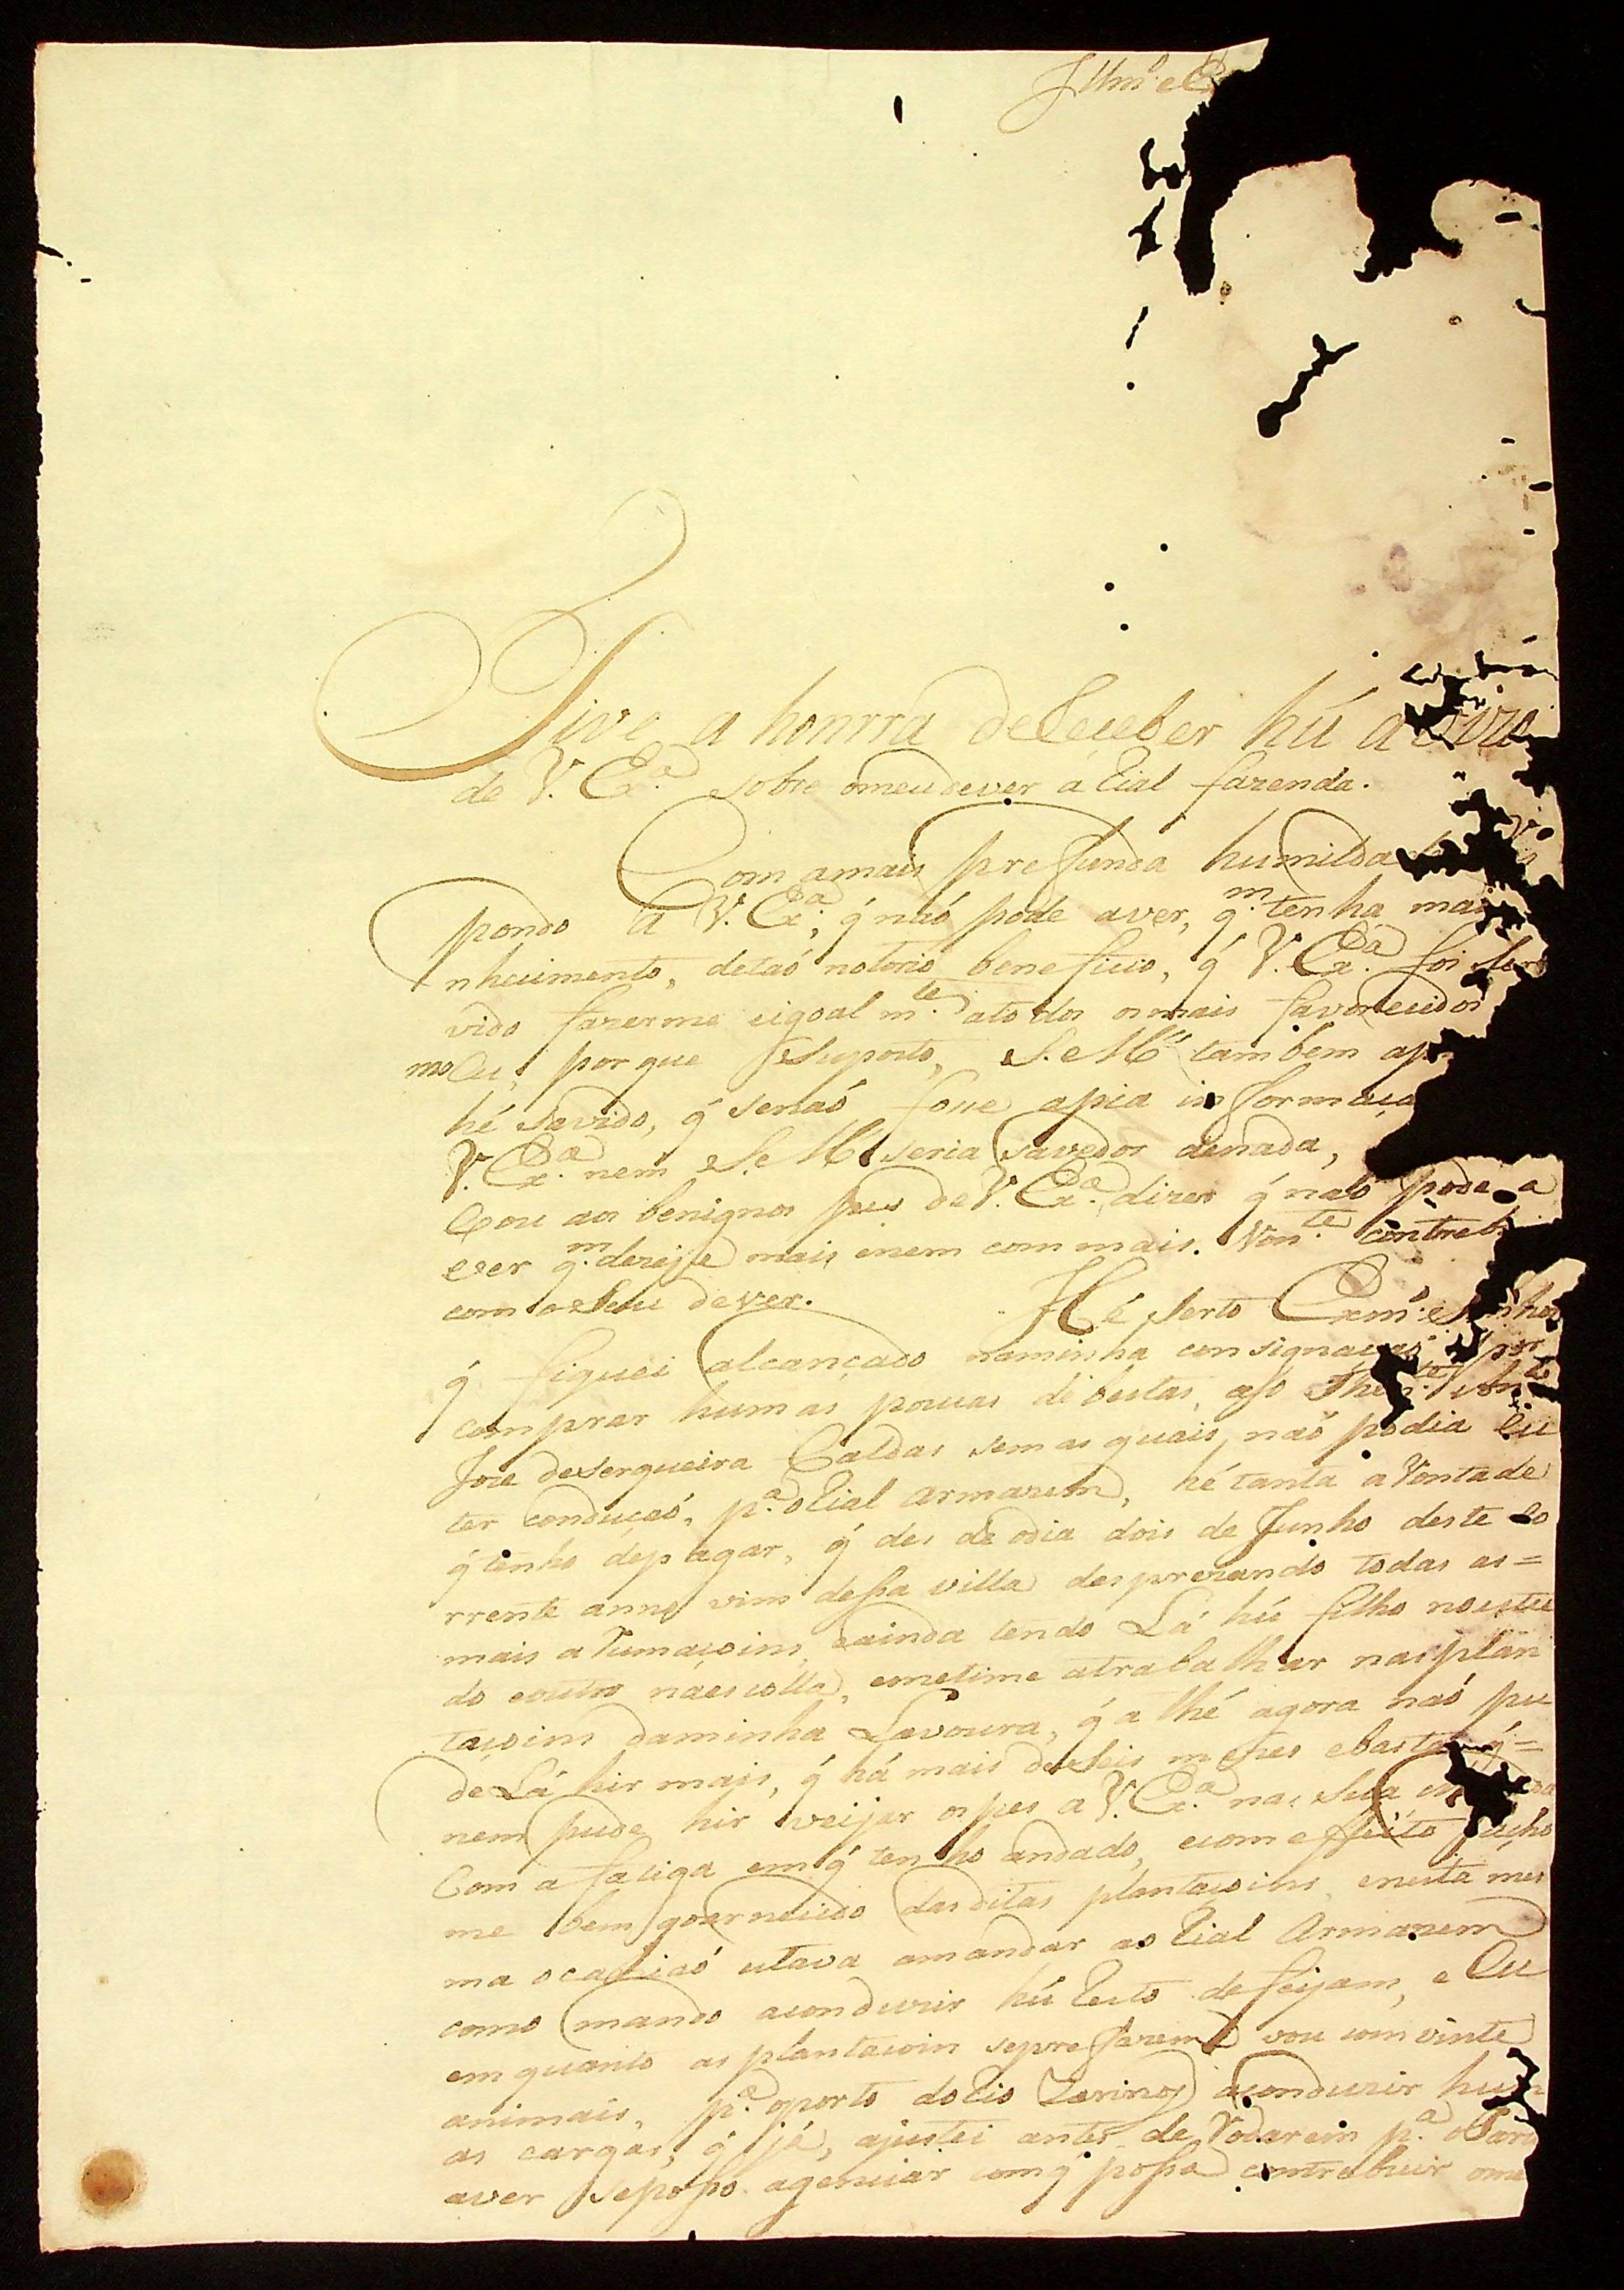 Illmo. e
Tive a honrra de Receber hú avizo
de V. Exa. sobre omeudever á Rial fazenda.
Com amais prefunda humilda
pondo a V. Exa., q̃ naó pode aver, qm. tenha mais
nhecimento, detaó notorio beneficio, q̃ V. Exa. foi ser
vido fazerme eigoalmte. atodos osmais favorecidos
mo Eu, porque suposto, S. e Mé. tambem
hé savido, q̃ senaó fose apia informaçaó
V. Exa. nem S. e Mé. seria savedor denada,
aos benignos pes deV. Exa. dizer q̃ naó pode a
ver qm. dezeje mais enem com mais. Vonte. contreb
com oseu dever.
Hé serto Exmo. e Senhor
q̃ fiquei alcançado naminha consignaçaó por
comprar humas poucas debestas, aso
Joze deserqueira Caldas semas quais naó podia Eu
ter conduçaó, pa. oRial armazem, hé tanta a Vontade
q̃ tenho depagar, q̃ des de odia dois de Junho deste Co
rrente anno vim desa villa desprezando todas as=
mais aRumaçoins, eainda tendo Lá hú filho noestu
do eoutro náescolla, emetime atrabalhar nasplan
taçoins daminha Lavoura, q̃ athé agora naó pu
de Lá hir mais, q̃ há mais deseis mezes ebasta q̃=
nem pude hir veijar ospes a V. Exa. na sua
Com a fatiga emq̃ tenho andado, ecom effeito
me bem goarnecido dasditas plantaçoins, enesta mes
ma ocaziaó estava amandar ao Rial Armazem
como mando aconduzir hú Resto defeijam, e Eu
emquanto asplantacoin seprefazem vou com vinte
animais, pa. oporto doRio aconduzir hum
as cargas, q̃ já, ajustei antes de Rodarem pa. oPará
aver seposo agenciar comq̃ posa contrebuir ome